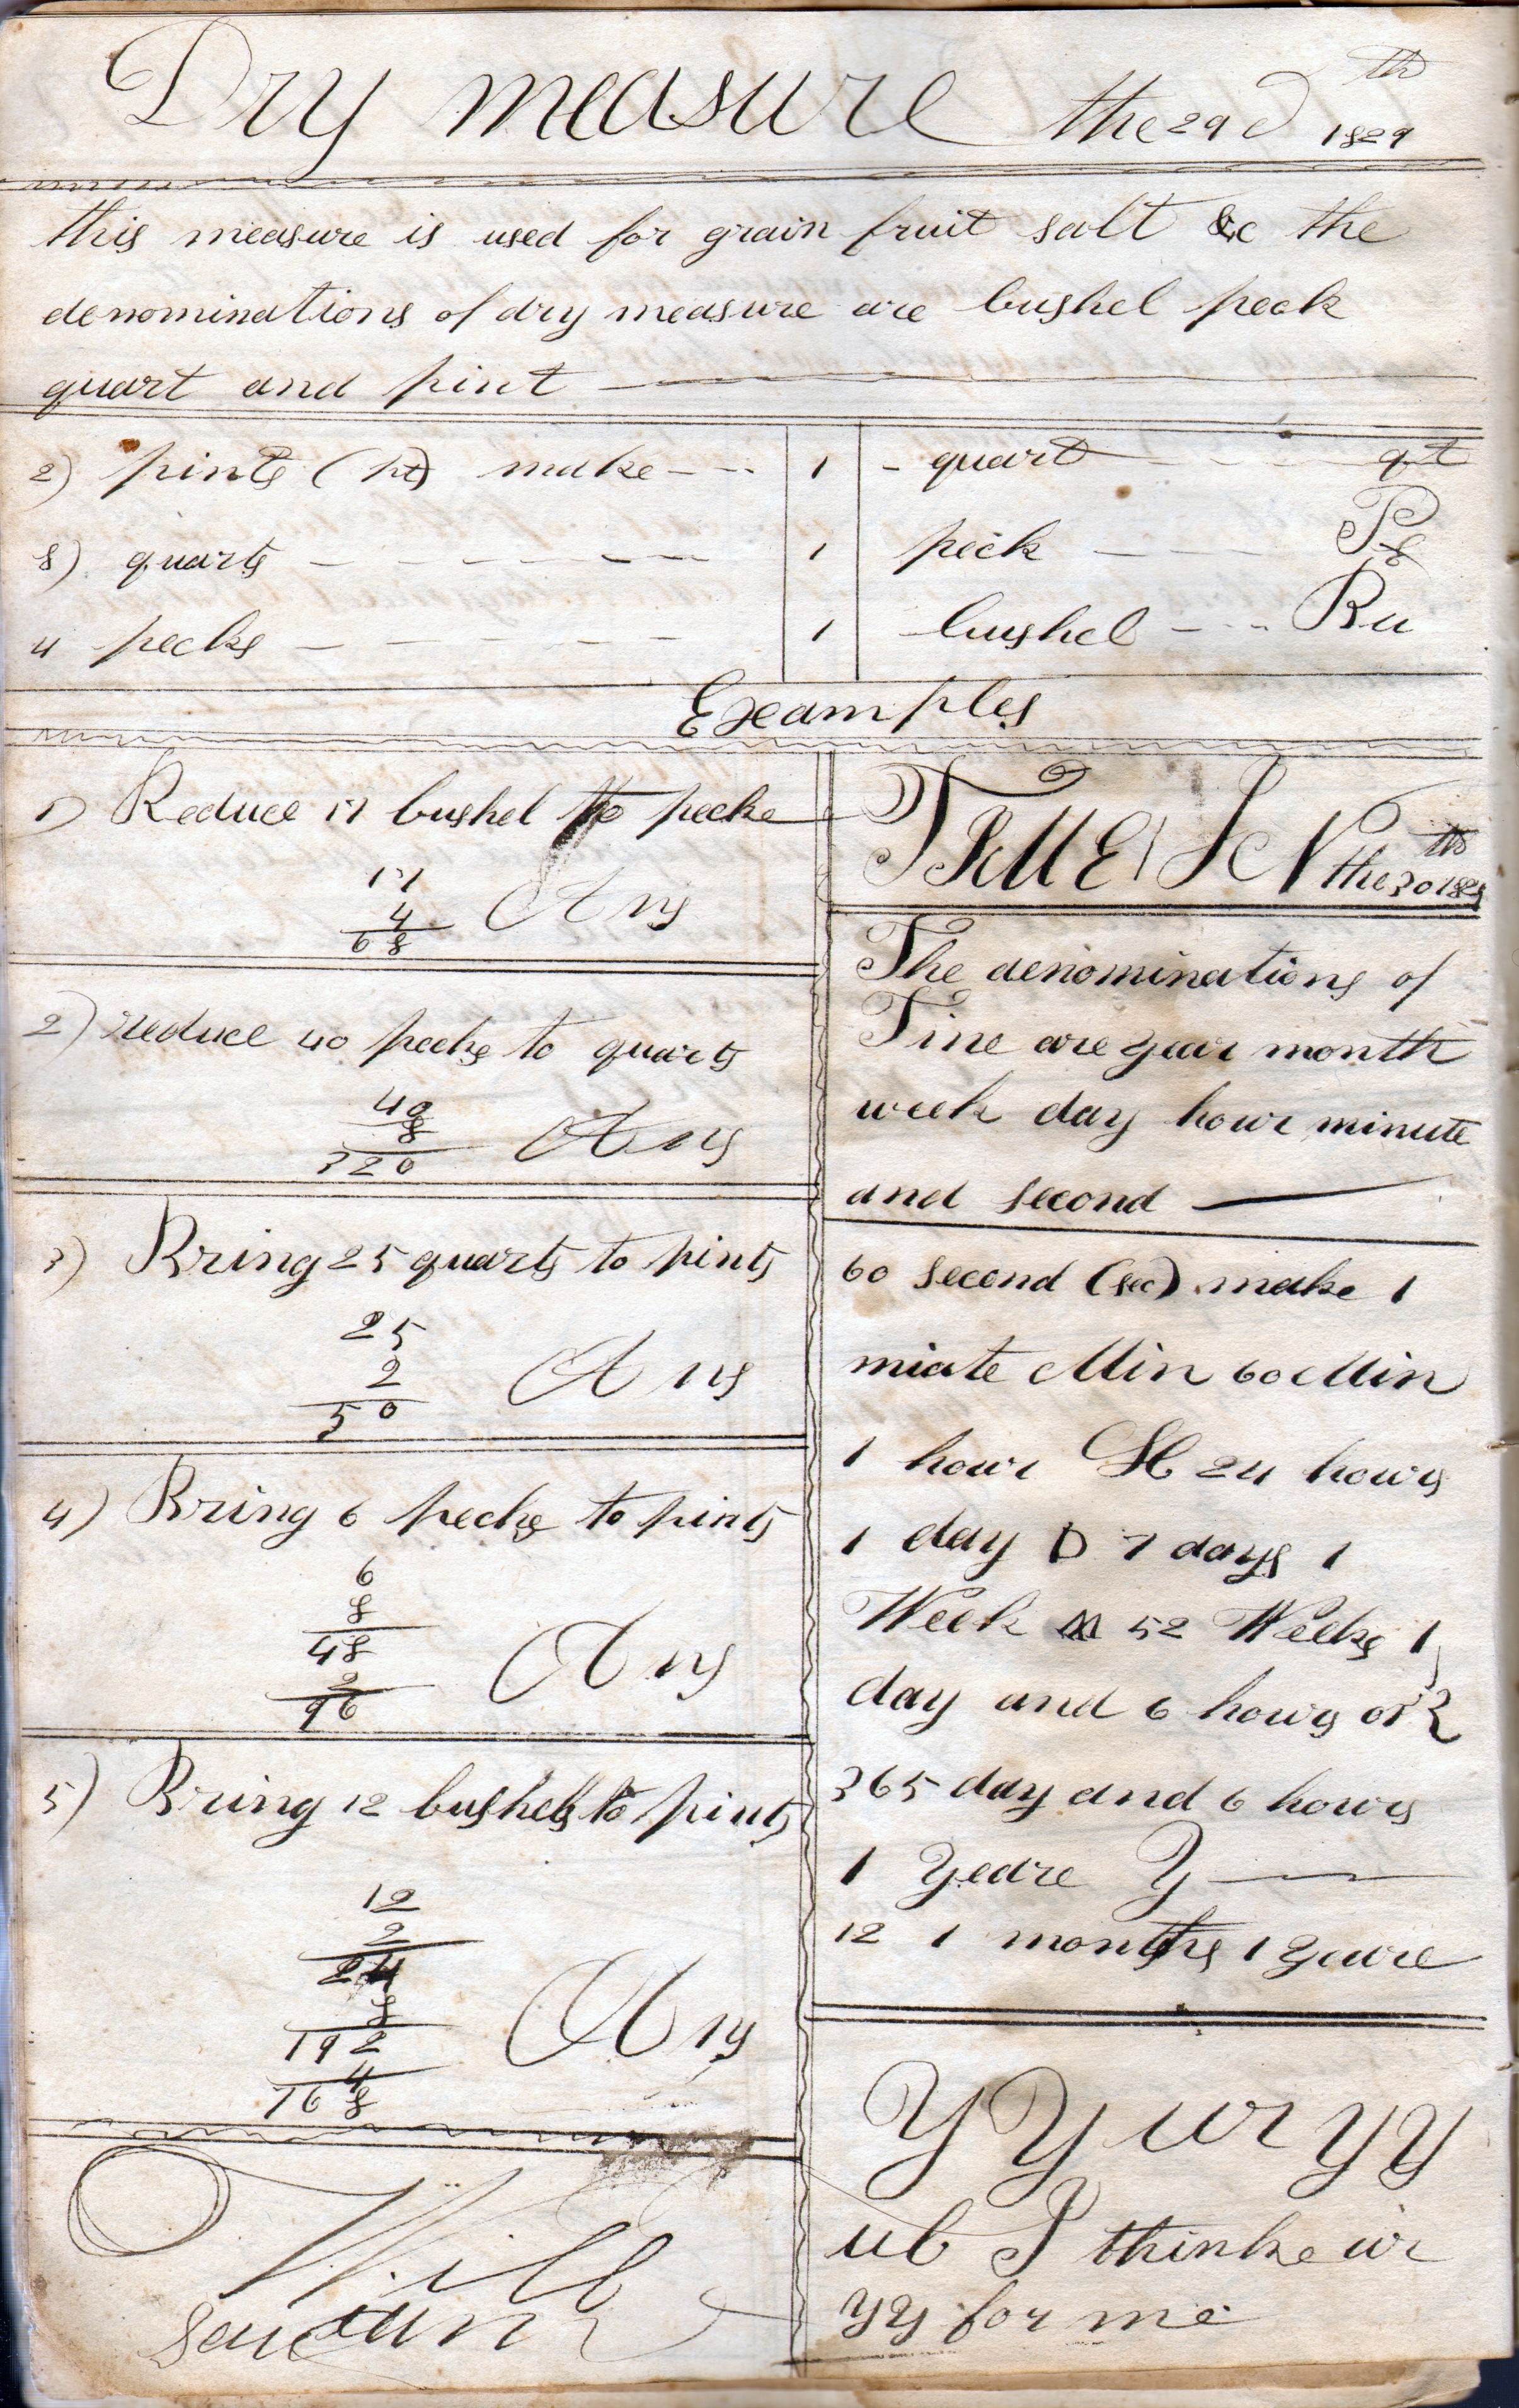 Dry measure the 29 d th 1829
this measure is used for grain fruit salt &c the
denominations of dry measure are bushel peck
quart and pint
2) pints (pt) make 1 quart qt
8) quarts 1 peck P
4 pecks 1 bushel Bu
Examples
1) Reduce 17 bushel to pecks
17
4
68 Ans
2) reduce 40 pecks to quarts
40
8
320 Ans
3) Bring 25 quarts to pints
25
2
50 Ans
4) Bring 6 pecks to pints
6
8
48
2
96 Ans
5) Bring 12 bushels to pints
12
2
24
8
192
4
768 Ans
Will
TIME the 30 th 1829
The denominations of
Tine are year month
week day hour minute
and second
60 second (sec) make 1
miate Min 60 Min
1 hour H 24 hours
1 day D 7 days 1
Week 52 Weeks 1
day and 6 hours or
365 day and 6 hours
1 Yeare Y
12 1 months 1 Yeare
Y Y ur yy
ub I thinke ur
yy for me